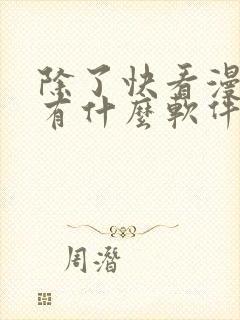 除了快看漫
有什麼軟件
周潛